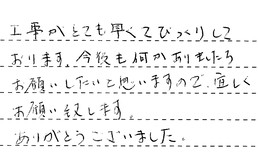 工事がとても早くてびっくりして
おります。今後も何かありましたら
お願いしたいと思いますので、宜しく
お願い致します。
ありがとうございました。